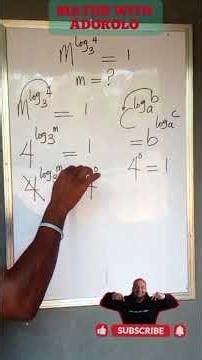 MATHS WITH
ADOROLO
m^{log_3 4} = 1
m = ?
m^{log_3 4} = 1
4^{log_3 m} = 1
4^{log_3 m} 4^0
C^{log_a b}
= b^{log_a c}
4^0 = 1
SUBSCRIBE